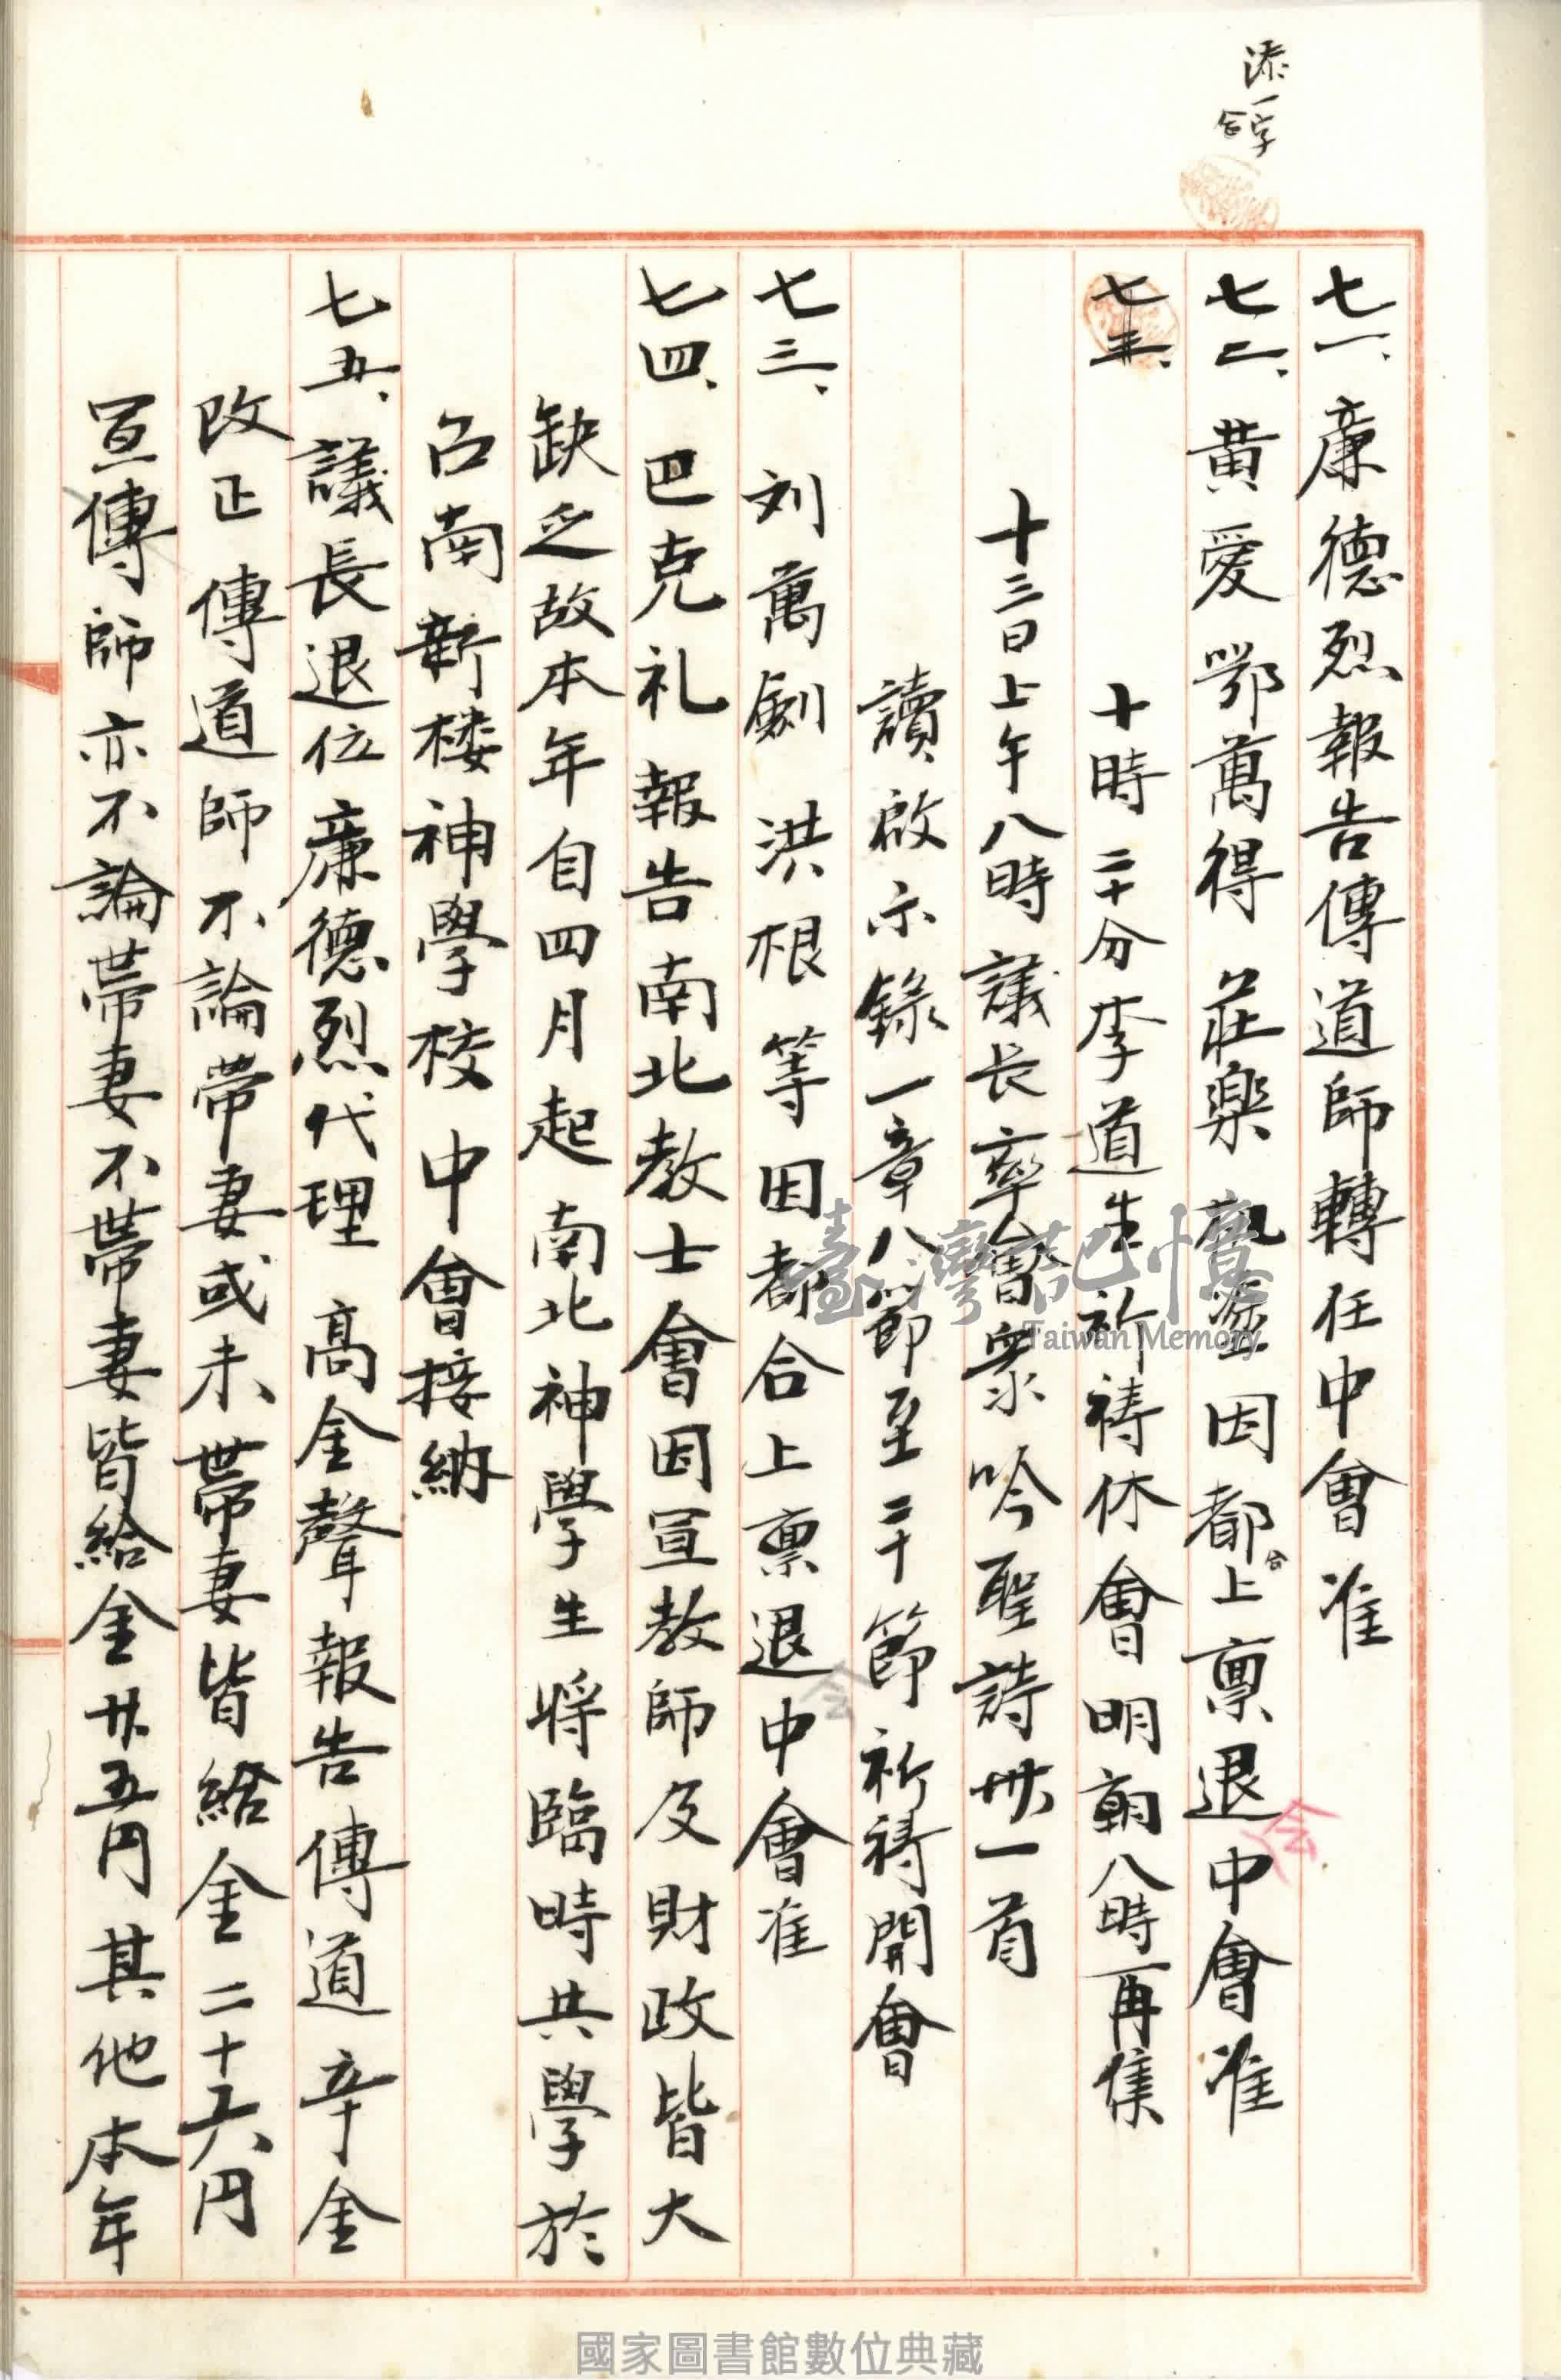 添一字
合
七一、廉德烈報告傳道師轉任中會准
七二、黄愛 鄂萬得 莊樂 因都合上禀退中會准
会
七三、
十時二十分李道生祈祷休會明朝八時再集
十三日上午八時議长率會衆吟聖詩卅一首
讀啟示錄一章八節至二十節祈祷開會
七三、刘萬劍 洪根等因都合上禀退中會准
会
七四、巴克礼報告南北教士會因宣教師及財政皆大
缺乏故本年自四月起南北神學生将臨時共學於
台南新楼神學校 中會接納
七五、議長退位廉德烈代理 高金聲報告傳道辛金
改正傳道師不論帶妻或未帶妻皆給金二十六円
宣傳師亦不論帶妻不帶妻皆給金廿五円其他本年
臺灣記憶
Taiwan Memory
國家圖書館數位典藏